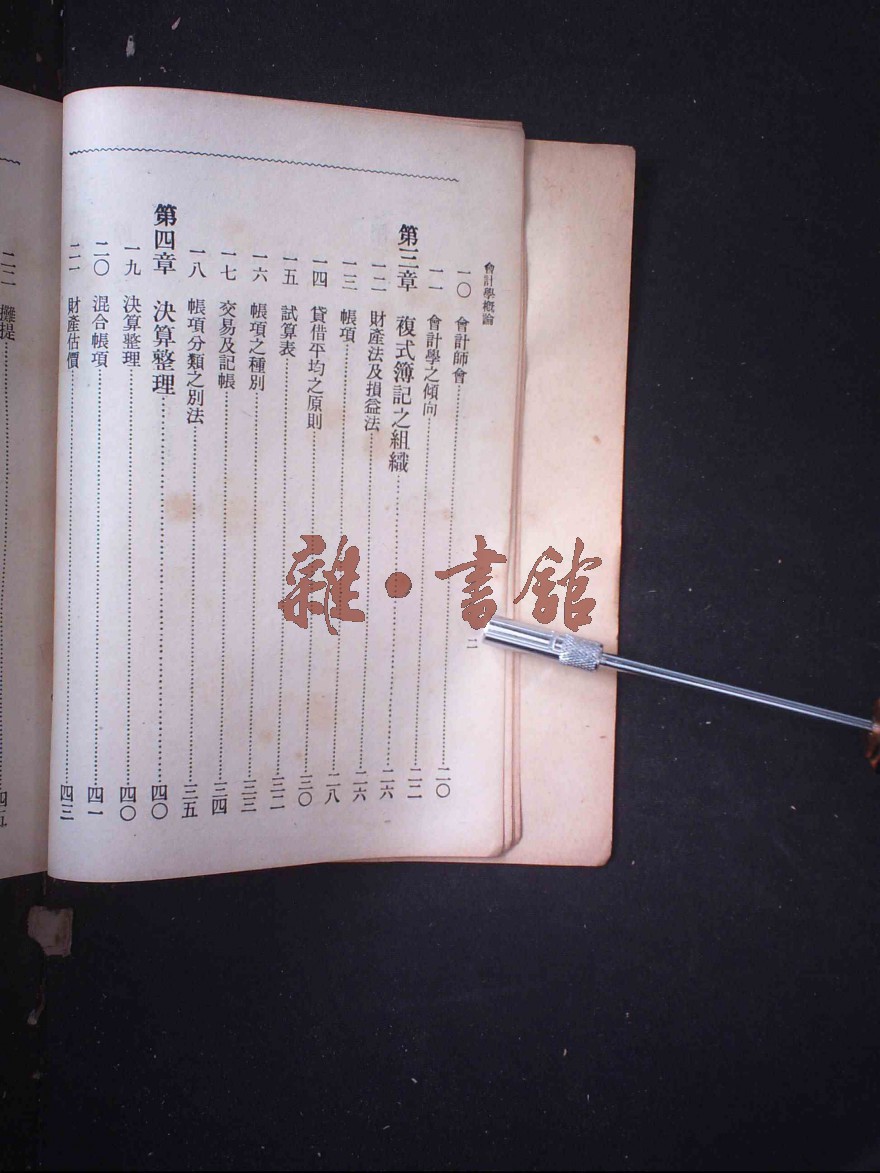 會計學概論
二
一〇 會計師會 二〇
一一 會計學之傾向 二二
第三章 複式簿記之組織 二六
一二 財產法及損益法 二六
一三 帳項 二八
一四 貸借平均之原則 三〇
一五 試算表 三二
一六 帳項之種別 三三
一七 交易及記帳 三四
一八 帳項分類之別法 三五
第四章 決算整理 四〇
一九 決算整理 四〇
二〇 混合帳項 四一
二一 財產估價 四三
二二 攤提 四五
雜·書館